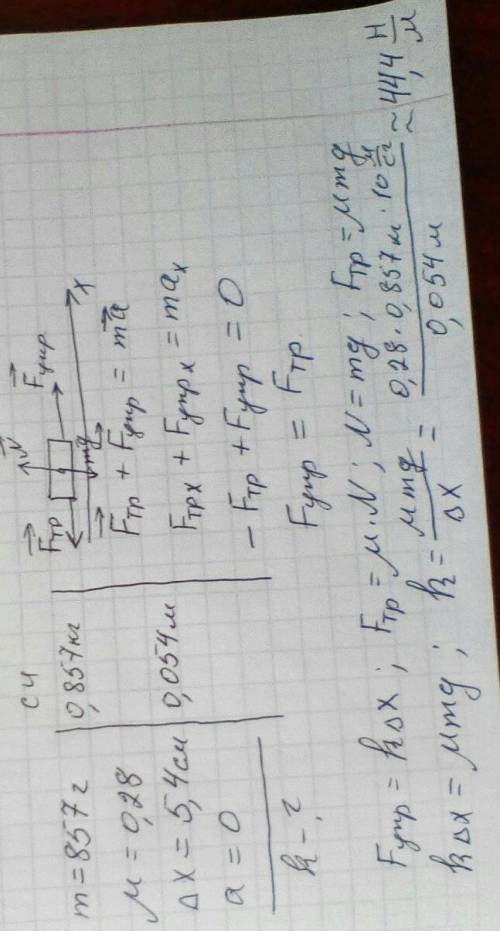 СИ
m = 857 г
0,857 кг
μ = 0,28
Δx = 5,4 см
0,054 м
a = 0
k - ?
Fтр
N
Fупр
mg
x
Fтр + Fупр = ma
Fтрx + Fупрx = max
- Fтр + Fупр = 0
Fупр = Fтр
Fупр = kΔx ; Fтр = μ·N ; N = mg ; Fтр = μmg
kΔx = μmg ; k = μmg / Δx = 0,28 · 0,857 кг · 10 м/с² / 0,054 м ≈ 44,4 Н/м